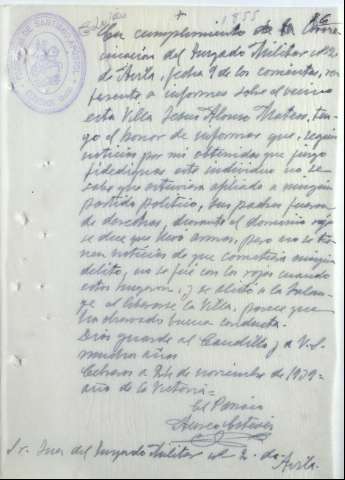 +
1855
En cumplimiento de la Comu-
nicación del Juzgado Militar nº 2
de Avila, fecha 9 de los corrientes, re-
ferente a informes sobre el vecino
esta Villa Jesus Alonso Mateos, ten-
go el honor de informar que, según
noticias por mi obtenidas que juzgo
fidedignas este individuo no se
sabe que estuviera afiliado a ningún
partido político, sus padres fueron
de derechas, durante el dominio rojo
se dice que llevó armas, pero no se tie-
nen noticias de que cometiera ningún
delito, no se fué con los rojos cuando
estos huyeron, y se afilió a la Falan-
ge al liberarse la Villa, parece que
ha observado buena conducta.
Dios guarde al Caudillo y a V.S.
muchos años
Cebreros a 24 de noviembre de 1939=
año de la Victoria=
El Párroco
Sr. Juez del Juzgado Militar nº 2. de Avila.